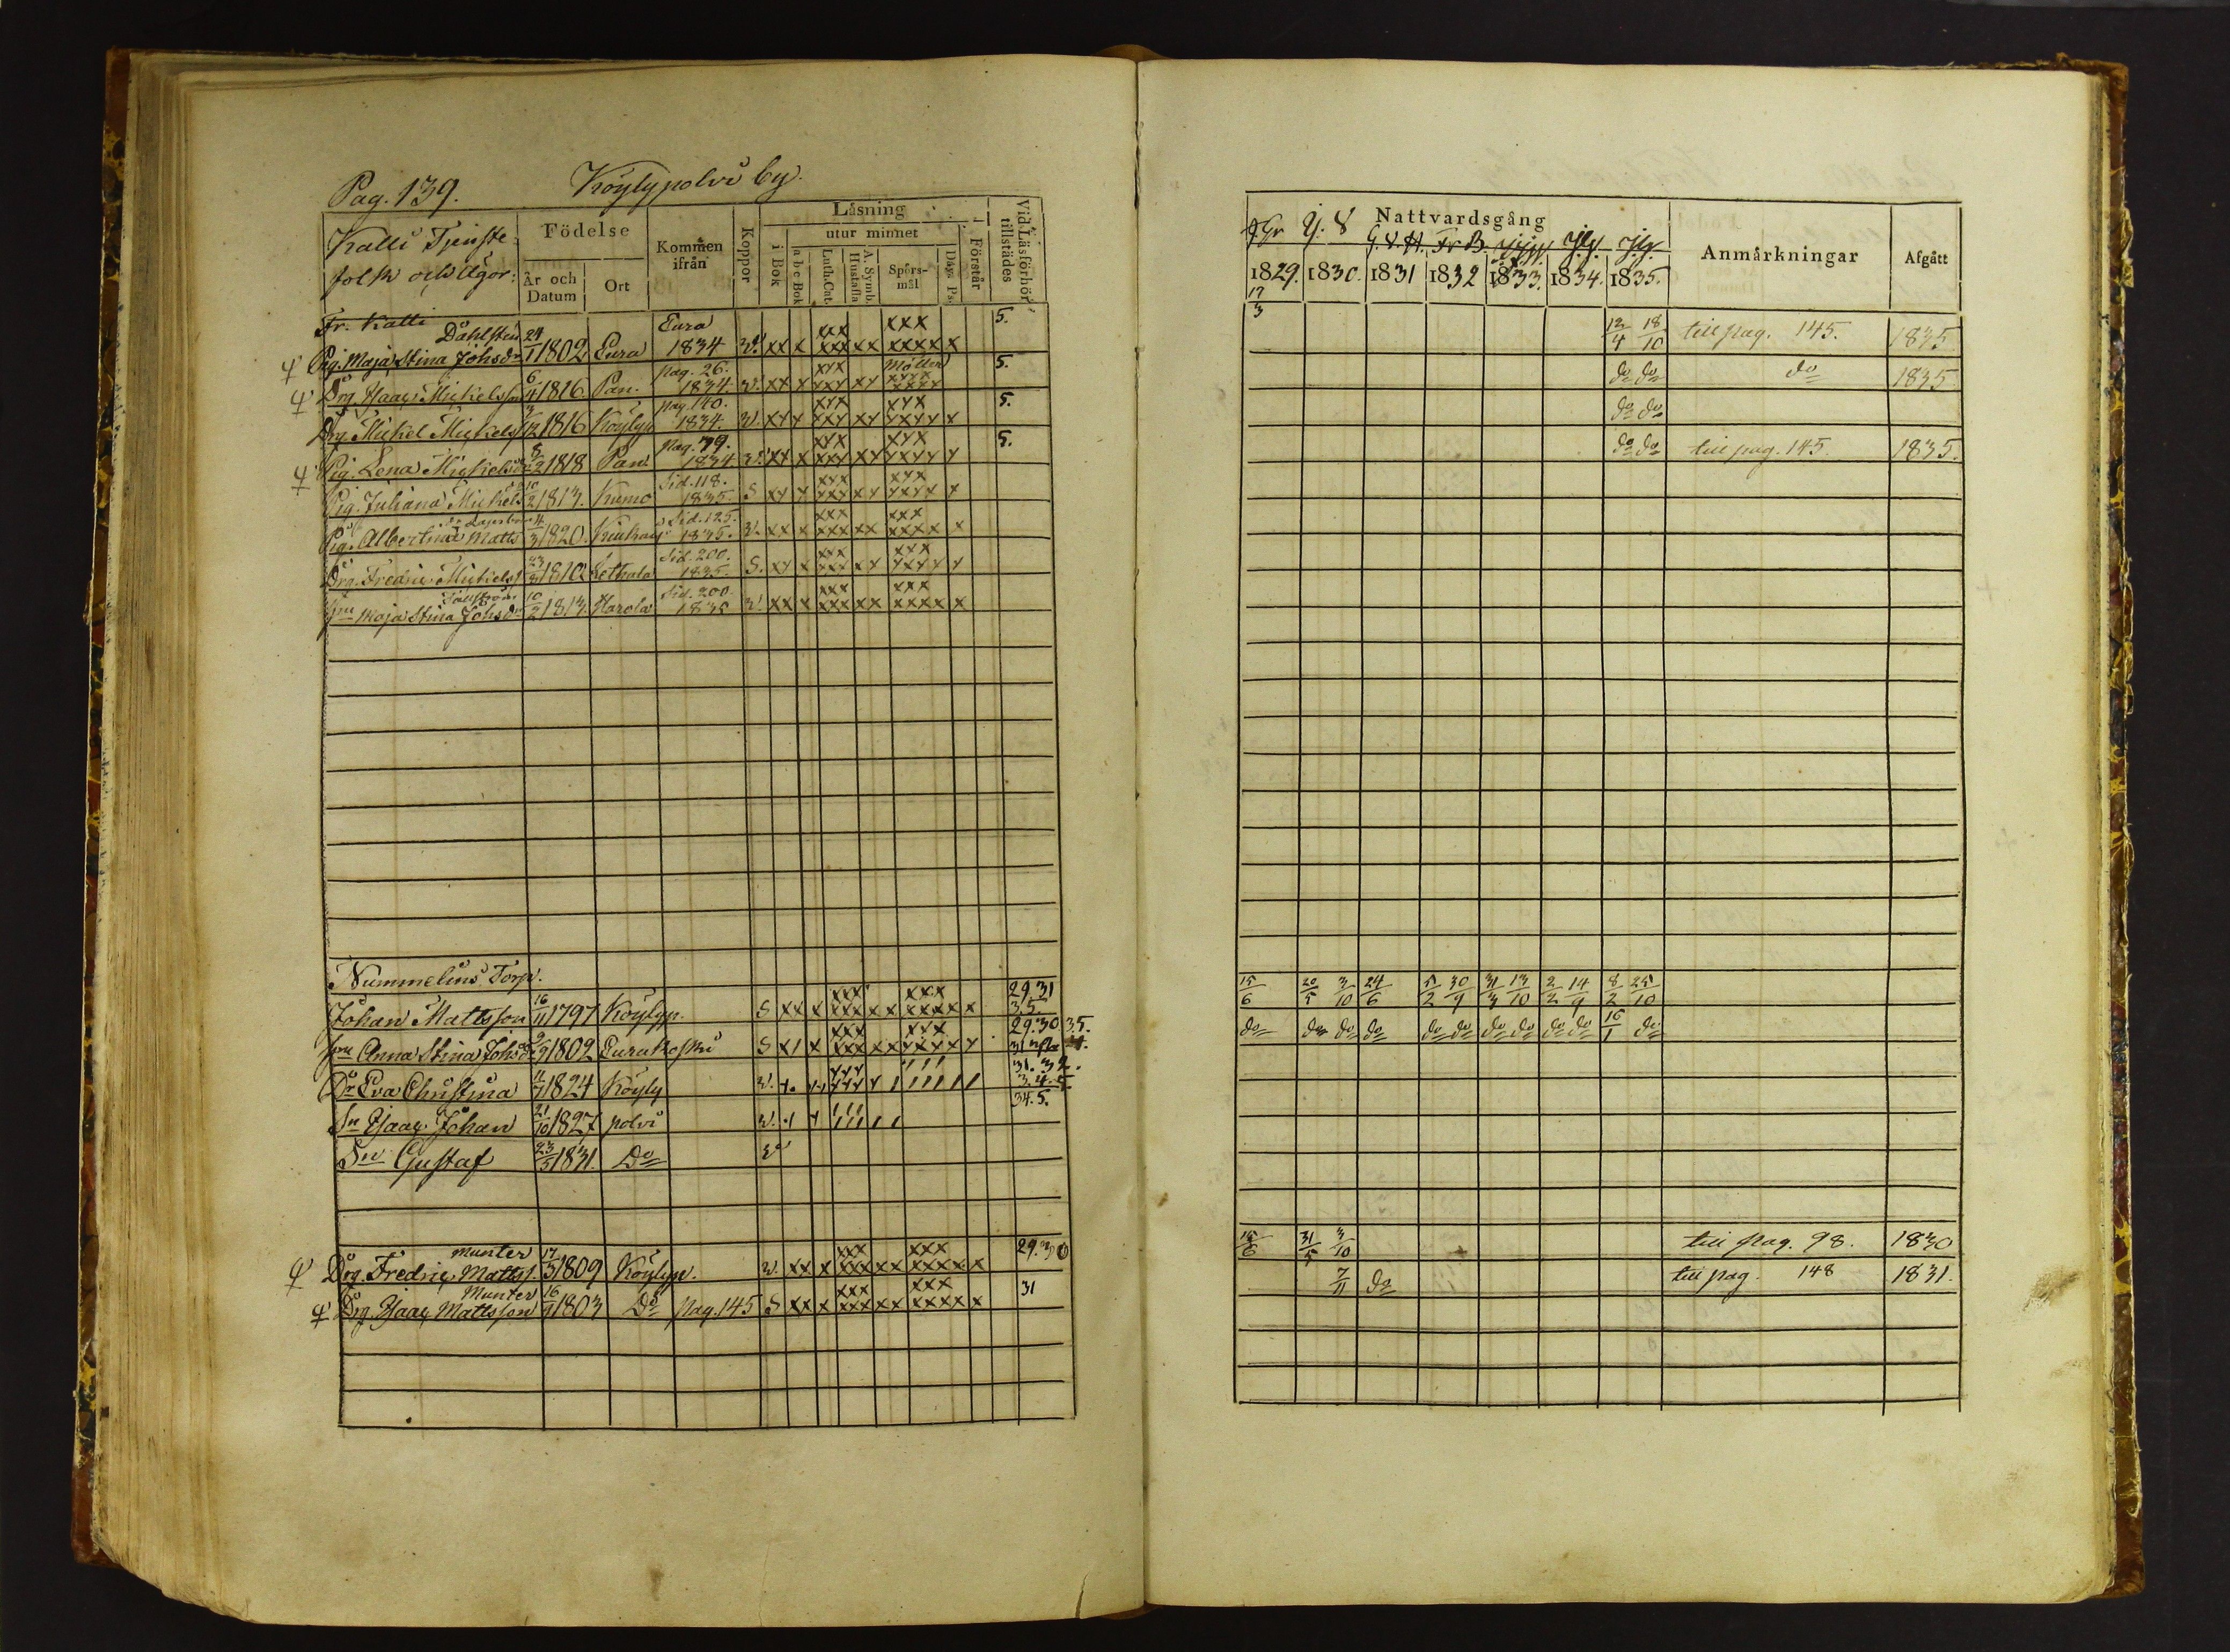 Pag. 139. Köylypolvi by.
Kalli Tjenste
folk och Ägor:
Födelse
År och Datum
Ort
Kommen ifrån
Koppor
Läsning
utur minnet
i Bok
a b c Bok
Luth. Cat.
A. Symb. Hustafla
Spörs-mål
Dav. Ps.
Förstår
Vid Läsförhör tillstädes
Fr. Kalli
Dahlsten Eura xxx xxx 5.
Pig. Maja Stina Johsdr 24/1 1802 Eura 1834 v. xx x xxx xx xxxx x
pag. 26. xxx Möller 5.
Drg. Isaac Mickelsson 6/4 1816 Pan. 1834 v. xx x xxx xx xxxx
pag. 140. xxx xxx 5.
Drg. Mickel Mickelss 3/12 1816 Köylyp 1834. v. xx x xxx xx xxxx x
Pag. 79. xxx xxx 5.
Pig. Lena Mickelsdr 8/2 1818 Pan. 1834 v. xx x xxx xx xxxx x
Sid. 118. xxx xxx
Pig. Juliana Mickels 10/2 1813. Kumo 1835. S xx x xxx xx xxxx x
Sid. 125. xxx xxx
Pig. Albertina Matts 4/3 1820. 1835. v. xx x xxx xx xxxx x
Sid. 200. xxx xxx
Drg. Fredric Mickelss 1810 Kethola 1835. S. xx x xxx xx xxxx x
Sid. 200. xxx xxx
Maja Stina Johsdr 10/2 1813. Harola 1835 v. xx x xxx xx xxxx x
Nummelins Torp.
xxx xxx 29.31
Johan Mattsson 16/11 1797 Köylyp. S xx x xxx xx xxxx x 35.
xxx xxx 29.30 35.
Anna Stina Johsdr 1802 Eurakoski S x x xxx xx xxxx x
xxx 31. 32.
Dr Eva Christina 11/7 1824 Köyly v.
34.5.
Sn Isaac Johan 21/10 1827 polvi v.
Sn Gustaf 23/5 1831. Do v
Munter xxx xxx 29.30
Drg. Fredric Mattss. 17/3 1809 Köylyp. v. xx x xxx xx xxxx x
Munter xxx xxx 31
Drg. Isaac Mattsson 16/9 1803 Do pag. 145 S xx x xxx xx xxxx x
Nattvardsgång
Anmärkningar
Afgått
1829. 1830. 1831 1832 1833. 1834. 1835.
17/3
12/4 18/10 till pag. 145. 1835
do do do 1835
do do
do do till pag. 145 1835.
15/6 20/5 3/10 24/6 5/2 30/9 31/3 13/10 2/2 14/9 8/2 25/10
do do do do do do do do do do 16/1 do
15/6 31/5 3/10 till pag. 98. 1830
7/11 do till pag. 148 1831.